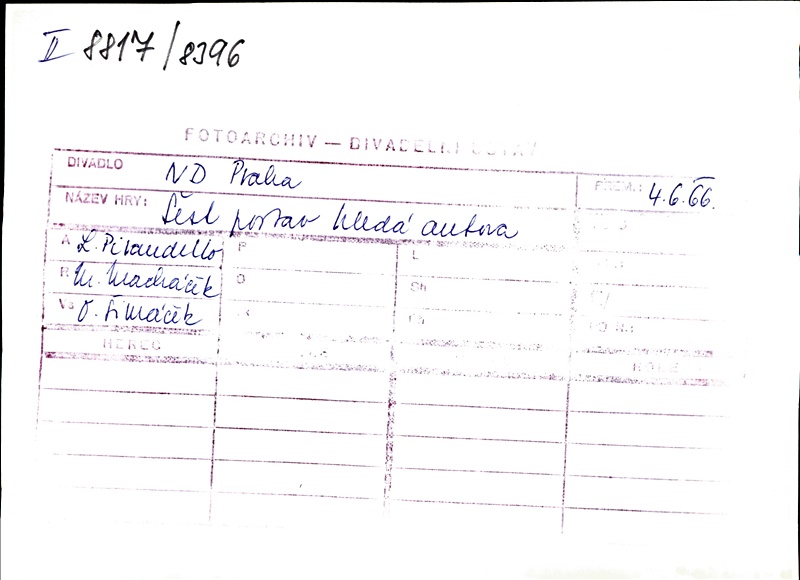 II 8817/8396
FOTOARCHIV — DIVADELNÍ ÚSTAV
DIVADLO ND Praha PREM.: 4.6.66.
NÁZEV HRY: Šest postav hledá autora
A L. Pirandello P L
R M. Macháček O Sh
Vs O. Šimáček K
HEREC ROLE